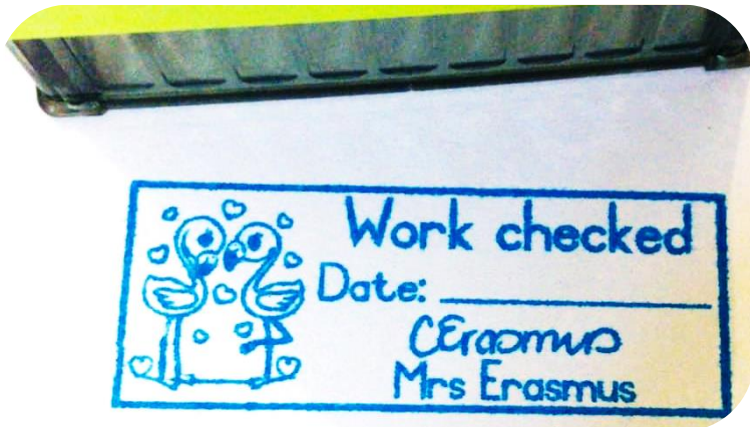 Work checked
Date: ____________________
CErasmus
Mrs Erasmus